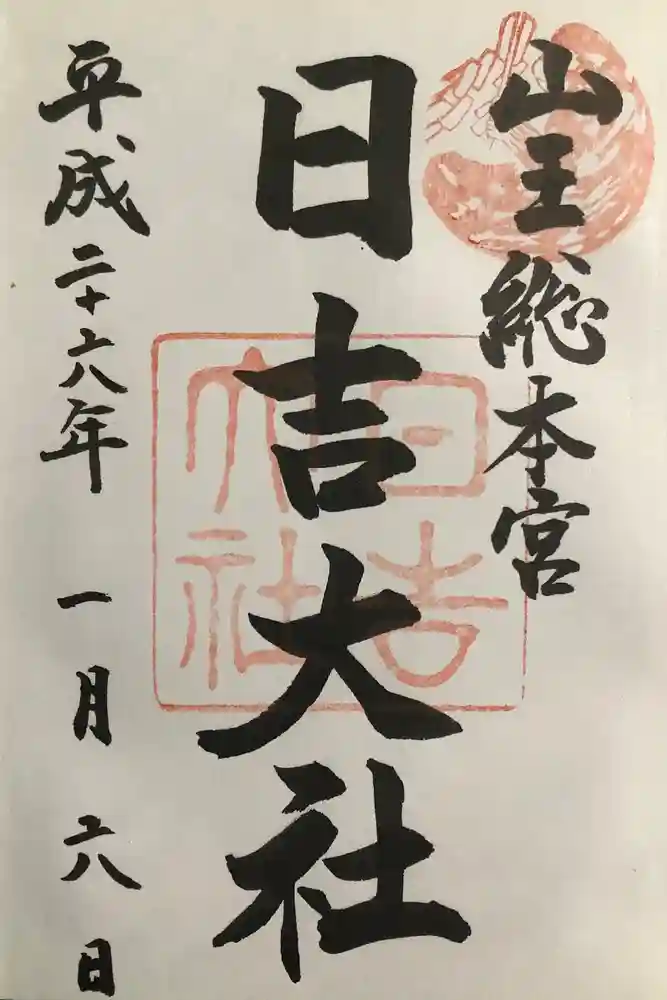 山王総本宮
日吉大社
日吉大社
平成二十六年 一月 六日